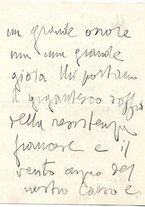 un grande onore
ma una grande
gioia. Mi portano
il gigantesco soffio
della resistenza
francese e il
vento aspro del
nostro Carso e